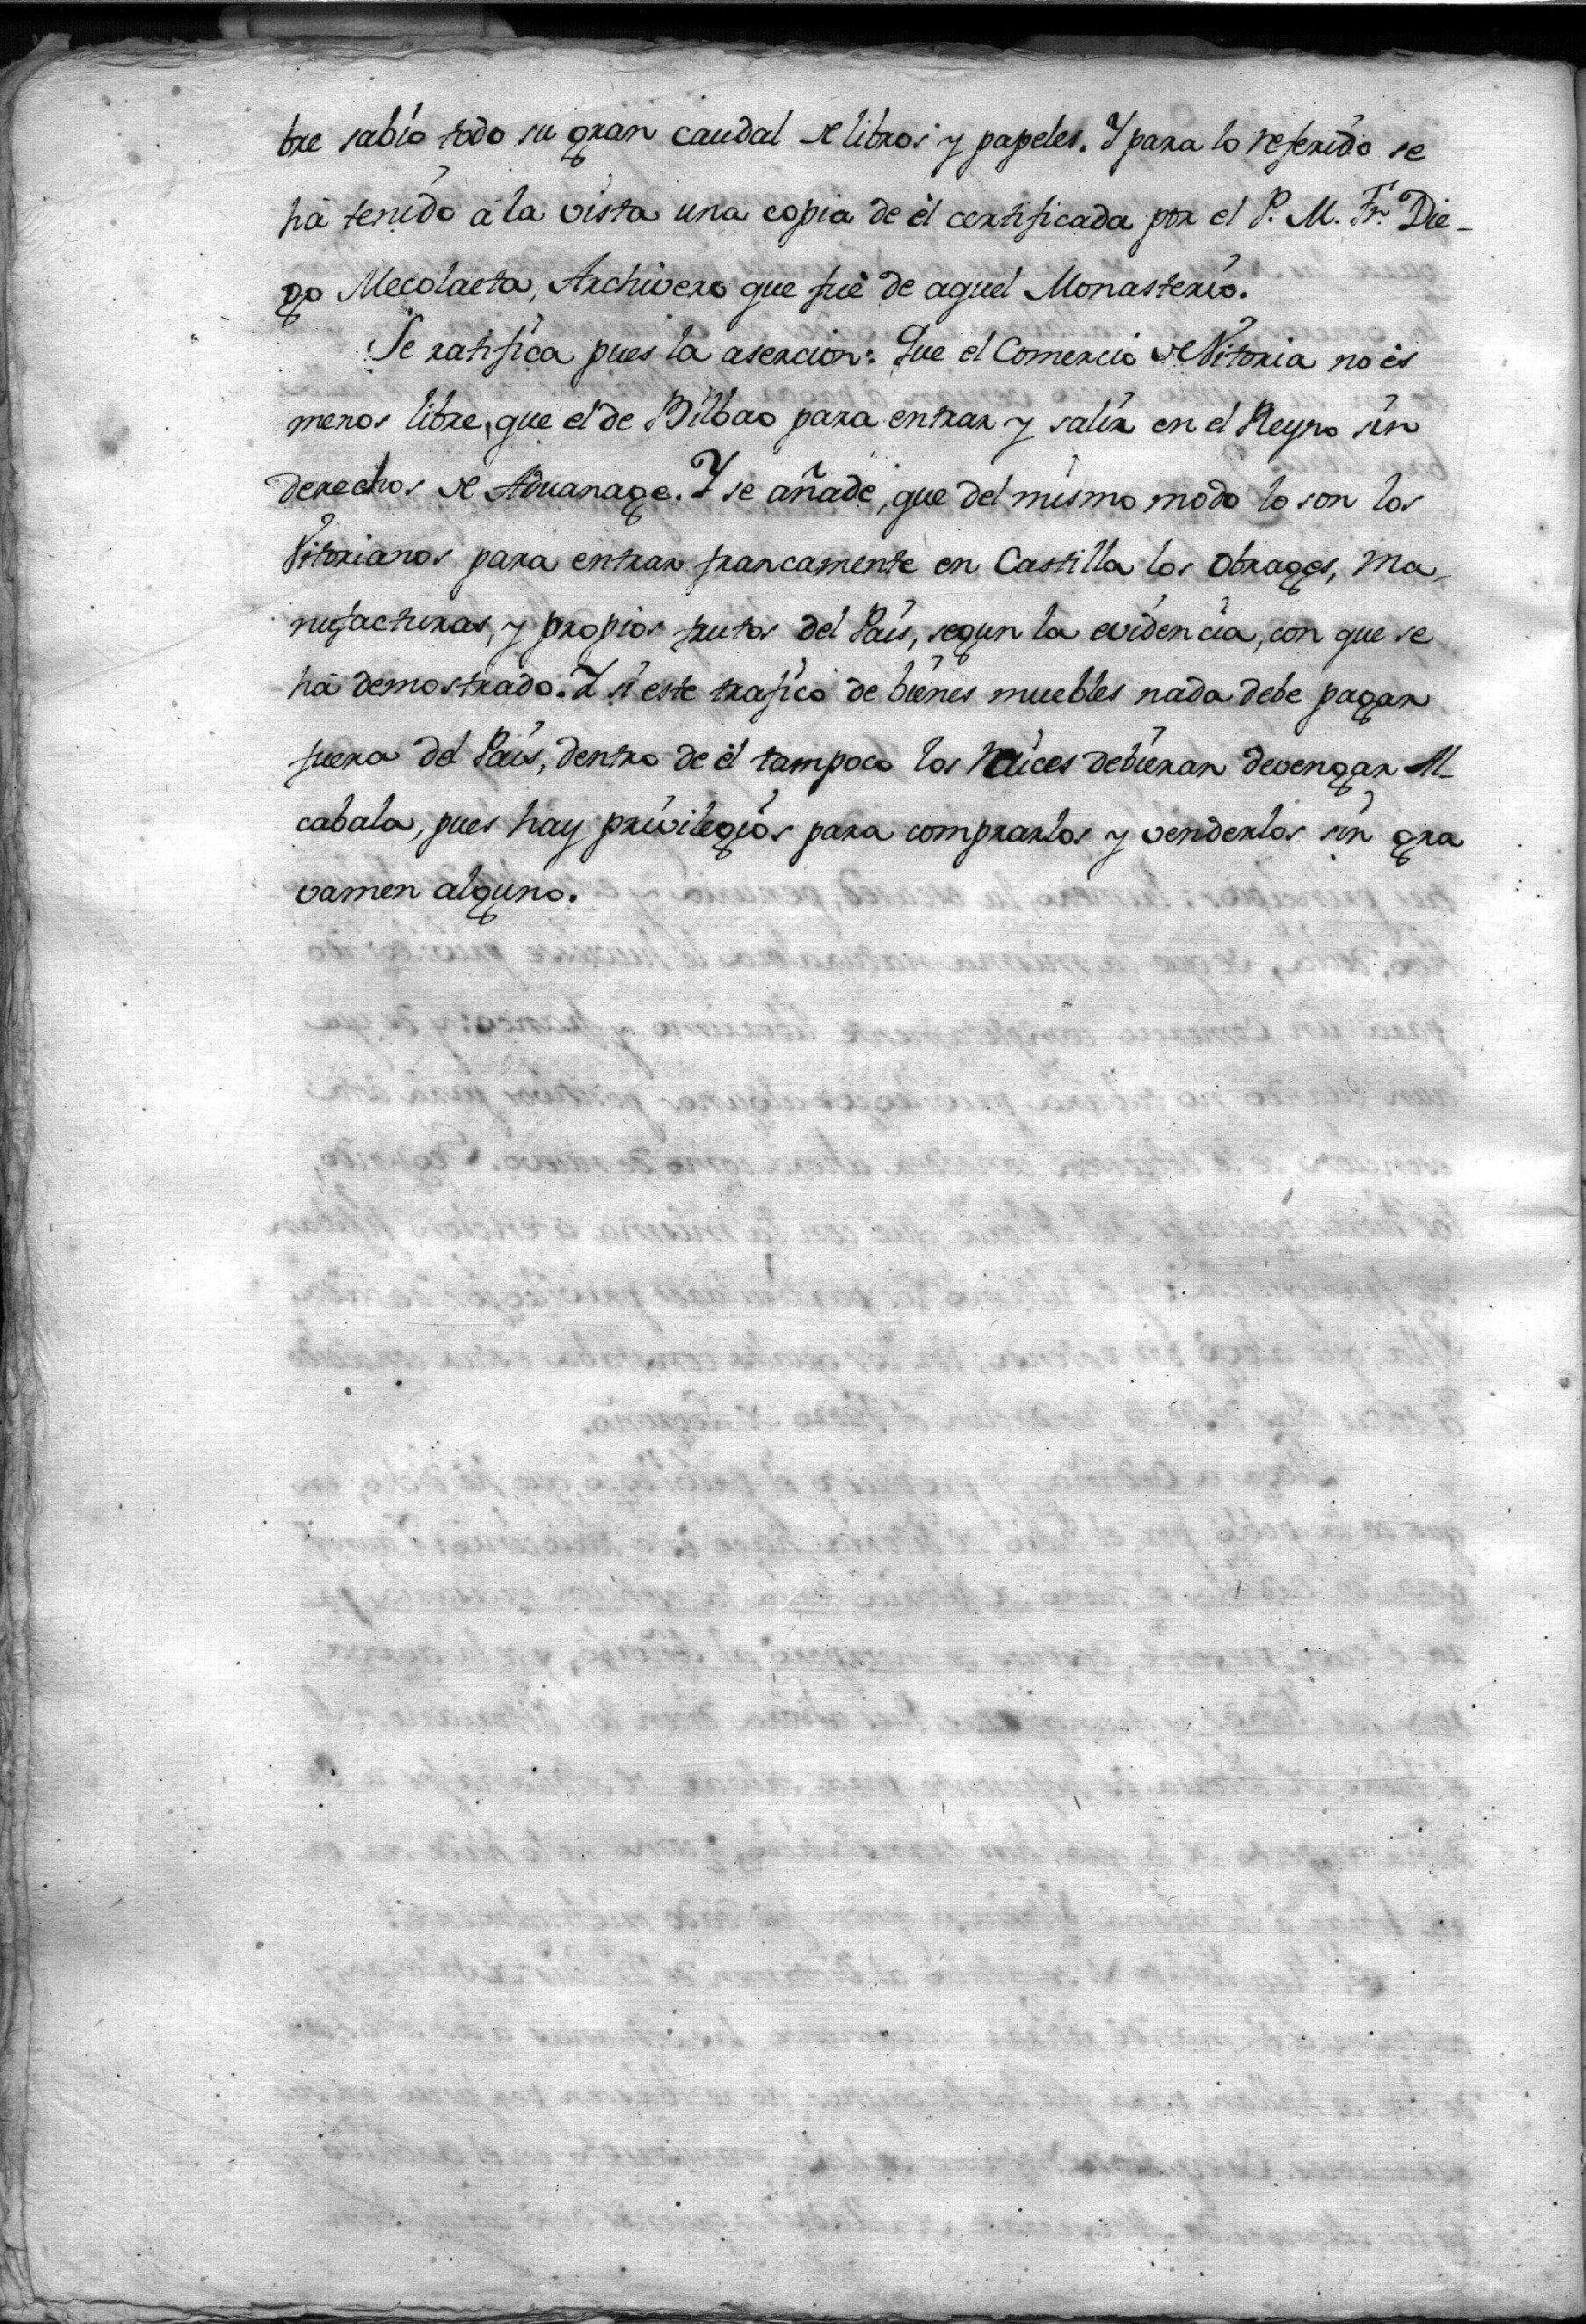 bre sabio todo su gran caudal de libros y papeles. Y para lo referido se
hà tenido à la vista una copia de èl certificada por el P. M. Fr. Die-
go Mecolaeta, Archivero que fuè de aquel Monasterio.
Se ratifica pues la asercion: Que el Comercio de Vitoria no ès
menos libre, que el de Bilbao para entrar y salir en el Reyno sin
derechos de Aduanage. Y se añade, que del mismo modo lo son los
Vitorianos para entrar francamente en Castilla los obrages, ma-
nufacturas, y propios frutos del Païs, segun la evidencia, con que se
hà demostrado. Y si este trafico de bienes muebles nada debe pagar
fuera del Païs, dentro de èl tampoco los raices debieran devengar Al-
cabala, pues hay privilegios para comprarlos y venderlos sin gra
vamen alguno.